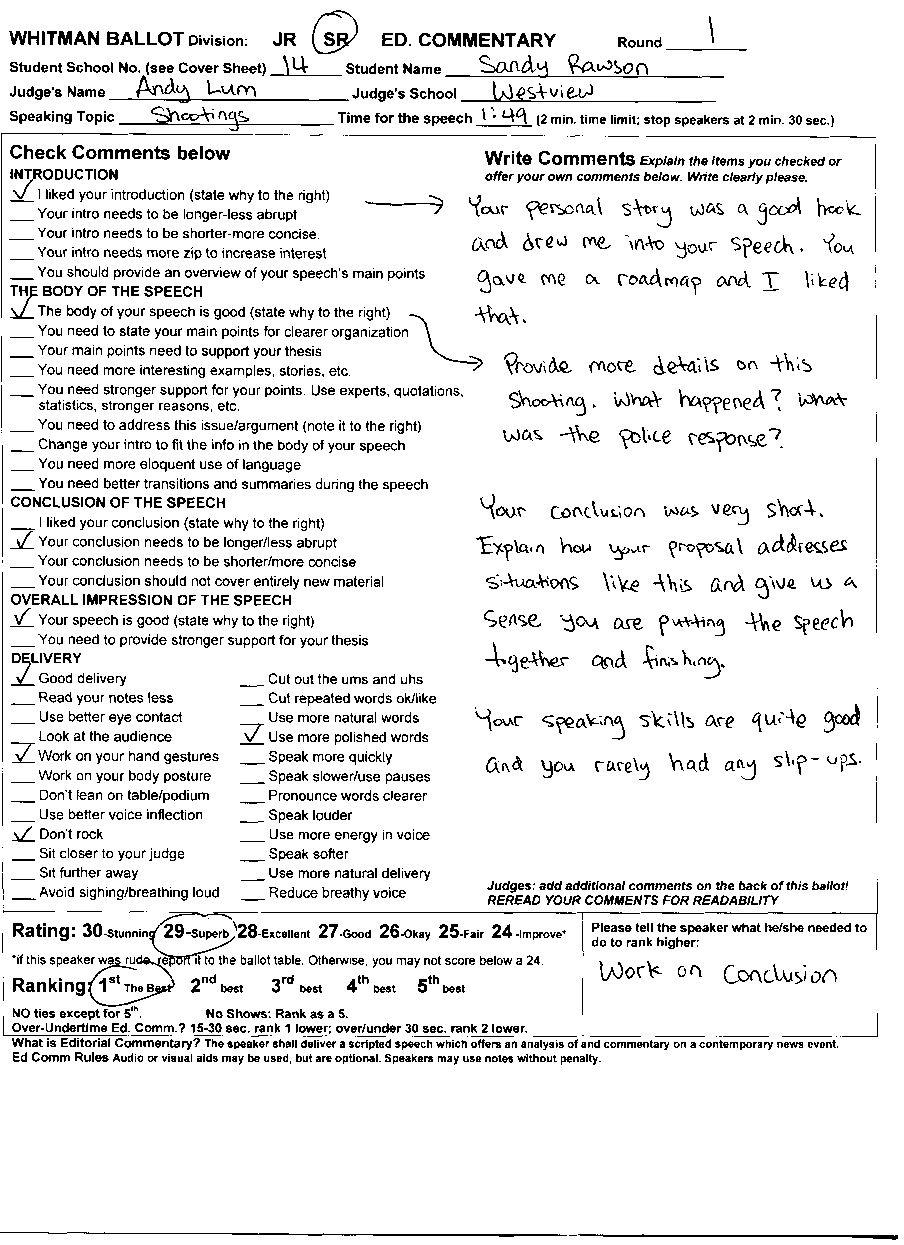 WHITMAN BALLOT Division: JR SR ED. COMMENTARY Round 1
Student School No. (see Cover Sheet) 14 Student Name Sandy Rawson
Judge's Name Andy Lum Judge's School Westview
Speaking Topic Shootings Time for the speech 1:49 (2 min. time limit; stop speakers at 2 min. 30 sec.)
Check Comments below
INTRODUCTION
✓ I liked your introduction (state why to the right)
Your intro needs to be longer-less abrupt
Your intro needs to be shorter-more concise.
Your intro needs more zip to increase interest
You should provide an overview of your speech's main points
THE BODY OF THE SPEECH
✓ The body of your speech is good (state why to the right)
You need to state your main points for clearer organization
Your main points need to support your thesis
You need more interesting examples, stories, etc.
You need stronger support for your points. Use experts, quotations,
statistics, stronger reasons, etc.
You need to address this issue/argument (note it to the right)
Change your intro to fit the info in the body of your speech
You need more eloquent use of language
You need better transitions and summaries during the speech
CONCLUSION OF THE SPEECH
I liked your conclusion (state why to the right)
✓ Your conclusion needs to be longer/less abrupt
Your conclusion needs to be shorter/more concise
Your conclusion should not cover entirely new material
OVERALL IMPRESSION OF THE SPEECH
✓ Your speech is good (state why to the right)
You need to provide stronger support for your thesis
DELIVERY
✓ Good delivery
Read your notes less
Use better eye contact
Look at the audience
✓ Work on your hand gestures
Work on your body posture
Don't lean on table/podium
Use better voice inflection
✓ Don't rock
Sit closer to your judge
Sit further away
Avoid sighing/breathing loud
Cut out the ums and uhs
Cut repeated words ok/like
Use more natural words
✓ Use more polished words
Speak more quickly
Speak slower/use pauses
Pronounce words clearer
Speak louder
Use more energy in voice
Speak softer
Use more natural delivery
Reduce breathy voice
Write Comments Explain the items you checked or
offer your own comments below. Write clearly please.
Your personal story was a good hook
and drew me into your speech. You
gave me a roadmap and I liked
that.
Provide more details on this
shooting. What happened? What
was the police response?
Your conclusion was very short.
Explain how your proposal addresses
situations like this and give us a
sense you are putting the speech
together and finishing.
Your speaking skills are quite good
and you rarely had any slip-ups.
Judges: add additional comments on the back of this ballot!
REREAD YOUR COMMENTS FOR READABILITY
Rating: 30-Stunning 29-Superb 28-Excellent 27-Good 26-Okay 25-Fair 24-Improve*
*if this speaker was rude, report it to the ballot table. Otherwise, you may not score below a 24.
Ranking: 1st The Best 2nd best 3rd best 4th best 5th best
NO ties except for 5th. No Shows: Rank as a 5.
Over-Undertime Ed. Comm.? 15-30 sec. rank 1 lower; over/under 30 sec. rank 2 lower.
Please tell the speaker what he/she needed to
do to rank higher:
Work on Conclusion
What is Editorial Commentary? The speaker shall deliver a scripted speech which offers an analysis of and commentary on a contemporary news event.
Ed Comm Rules Audio or visual aids may be used, but are optional. Speakers may use notes without penalty.